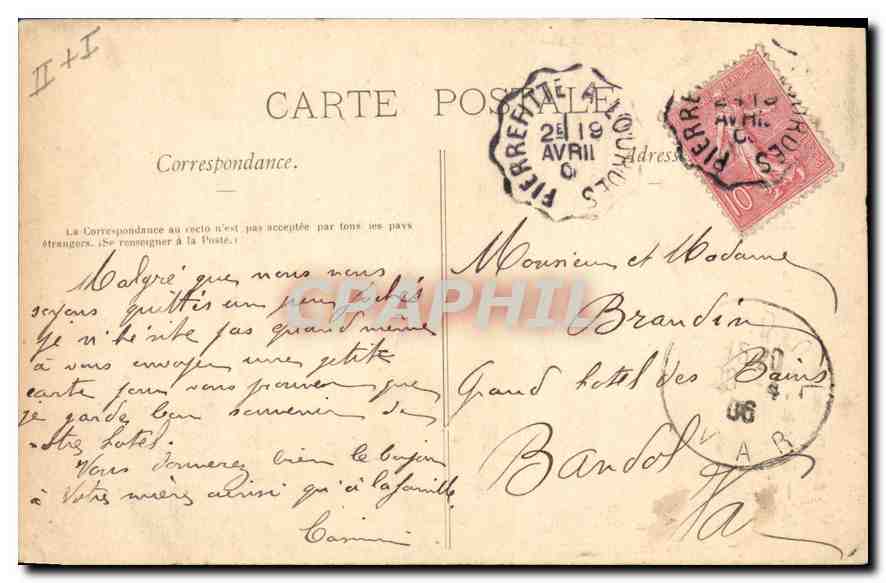 II + I
CARTE POSTALE
PIERREFITTE A LOURDES
2E 19
AVRIL
PIERRE LOURDES
2E 19
AVRIL
10
Correspondance.
Adresse
La Correspondance au recto n'est pas acceptée par tous les pays
étrangers. (Se renseigner à la Poste.)
CPAPHIL
Malgré que nous nous
soyons quittés un peu fachés
je n'hésite pas quand même
à vous envoyer une petite
carte pour vous prouver que
je garde bon souvenir de
votre hotel.
Vous donnerez bien le bonjour
à votre mère ainsi qu'à la famille
Casimir
Monsieur et Madame
Brandin
Grand hotel des Bains
Bandol
Va
30
4
06
VAR